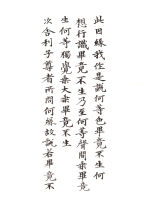 此因緣我作是說何等色畢竟不生何
想行識畢竟不生乃至何等聲聞乘畢竟
不生何等獨覺乘大乘畢竟不生
次舍利子尊者所問何緣故說若畢竟不